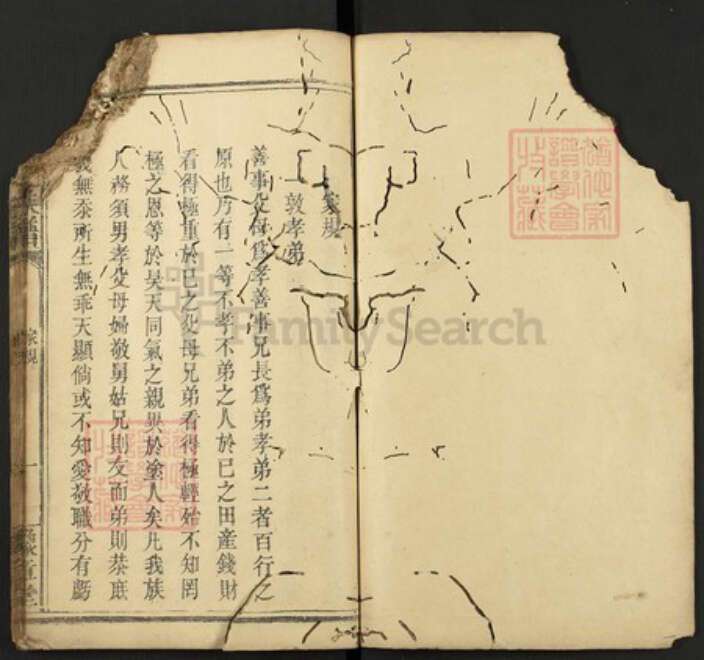 家規
敦孝弟
善事父母爲孝善事兄長爲弟孝弟二者百行之
原也乃有一等不孝不弟之人於已之田產錢財
看得極重於已之父母兄弟看得極輕殆不知罔
極之恩等於昊天同氣之親異於塗人矣凡我族
人務須男孝父母婦敬舅姑兄則友而弟則恭庶
幾無忝所生無乖天顯倘或不知愛敬職分有虧
家規
一
FamilySearch